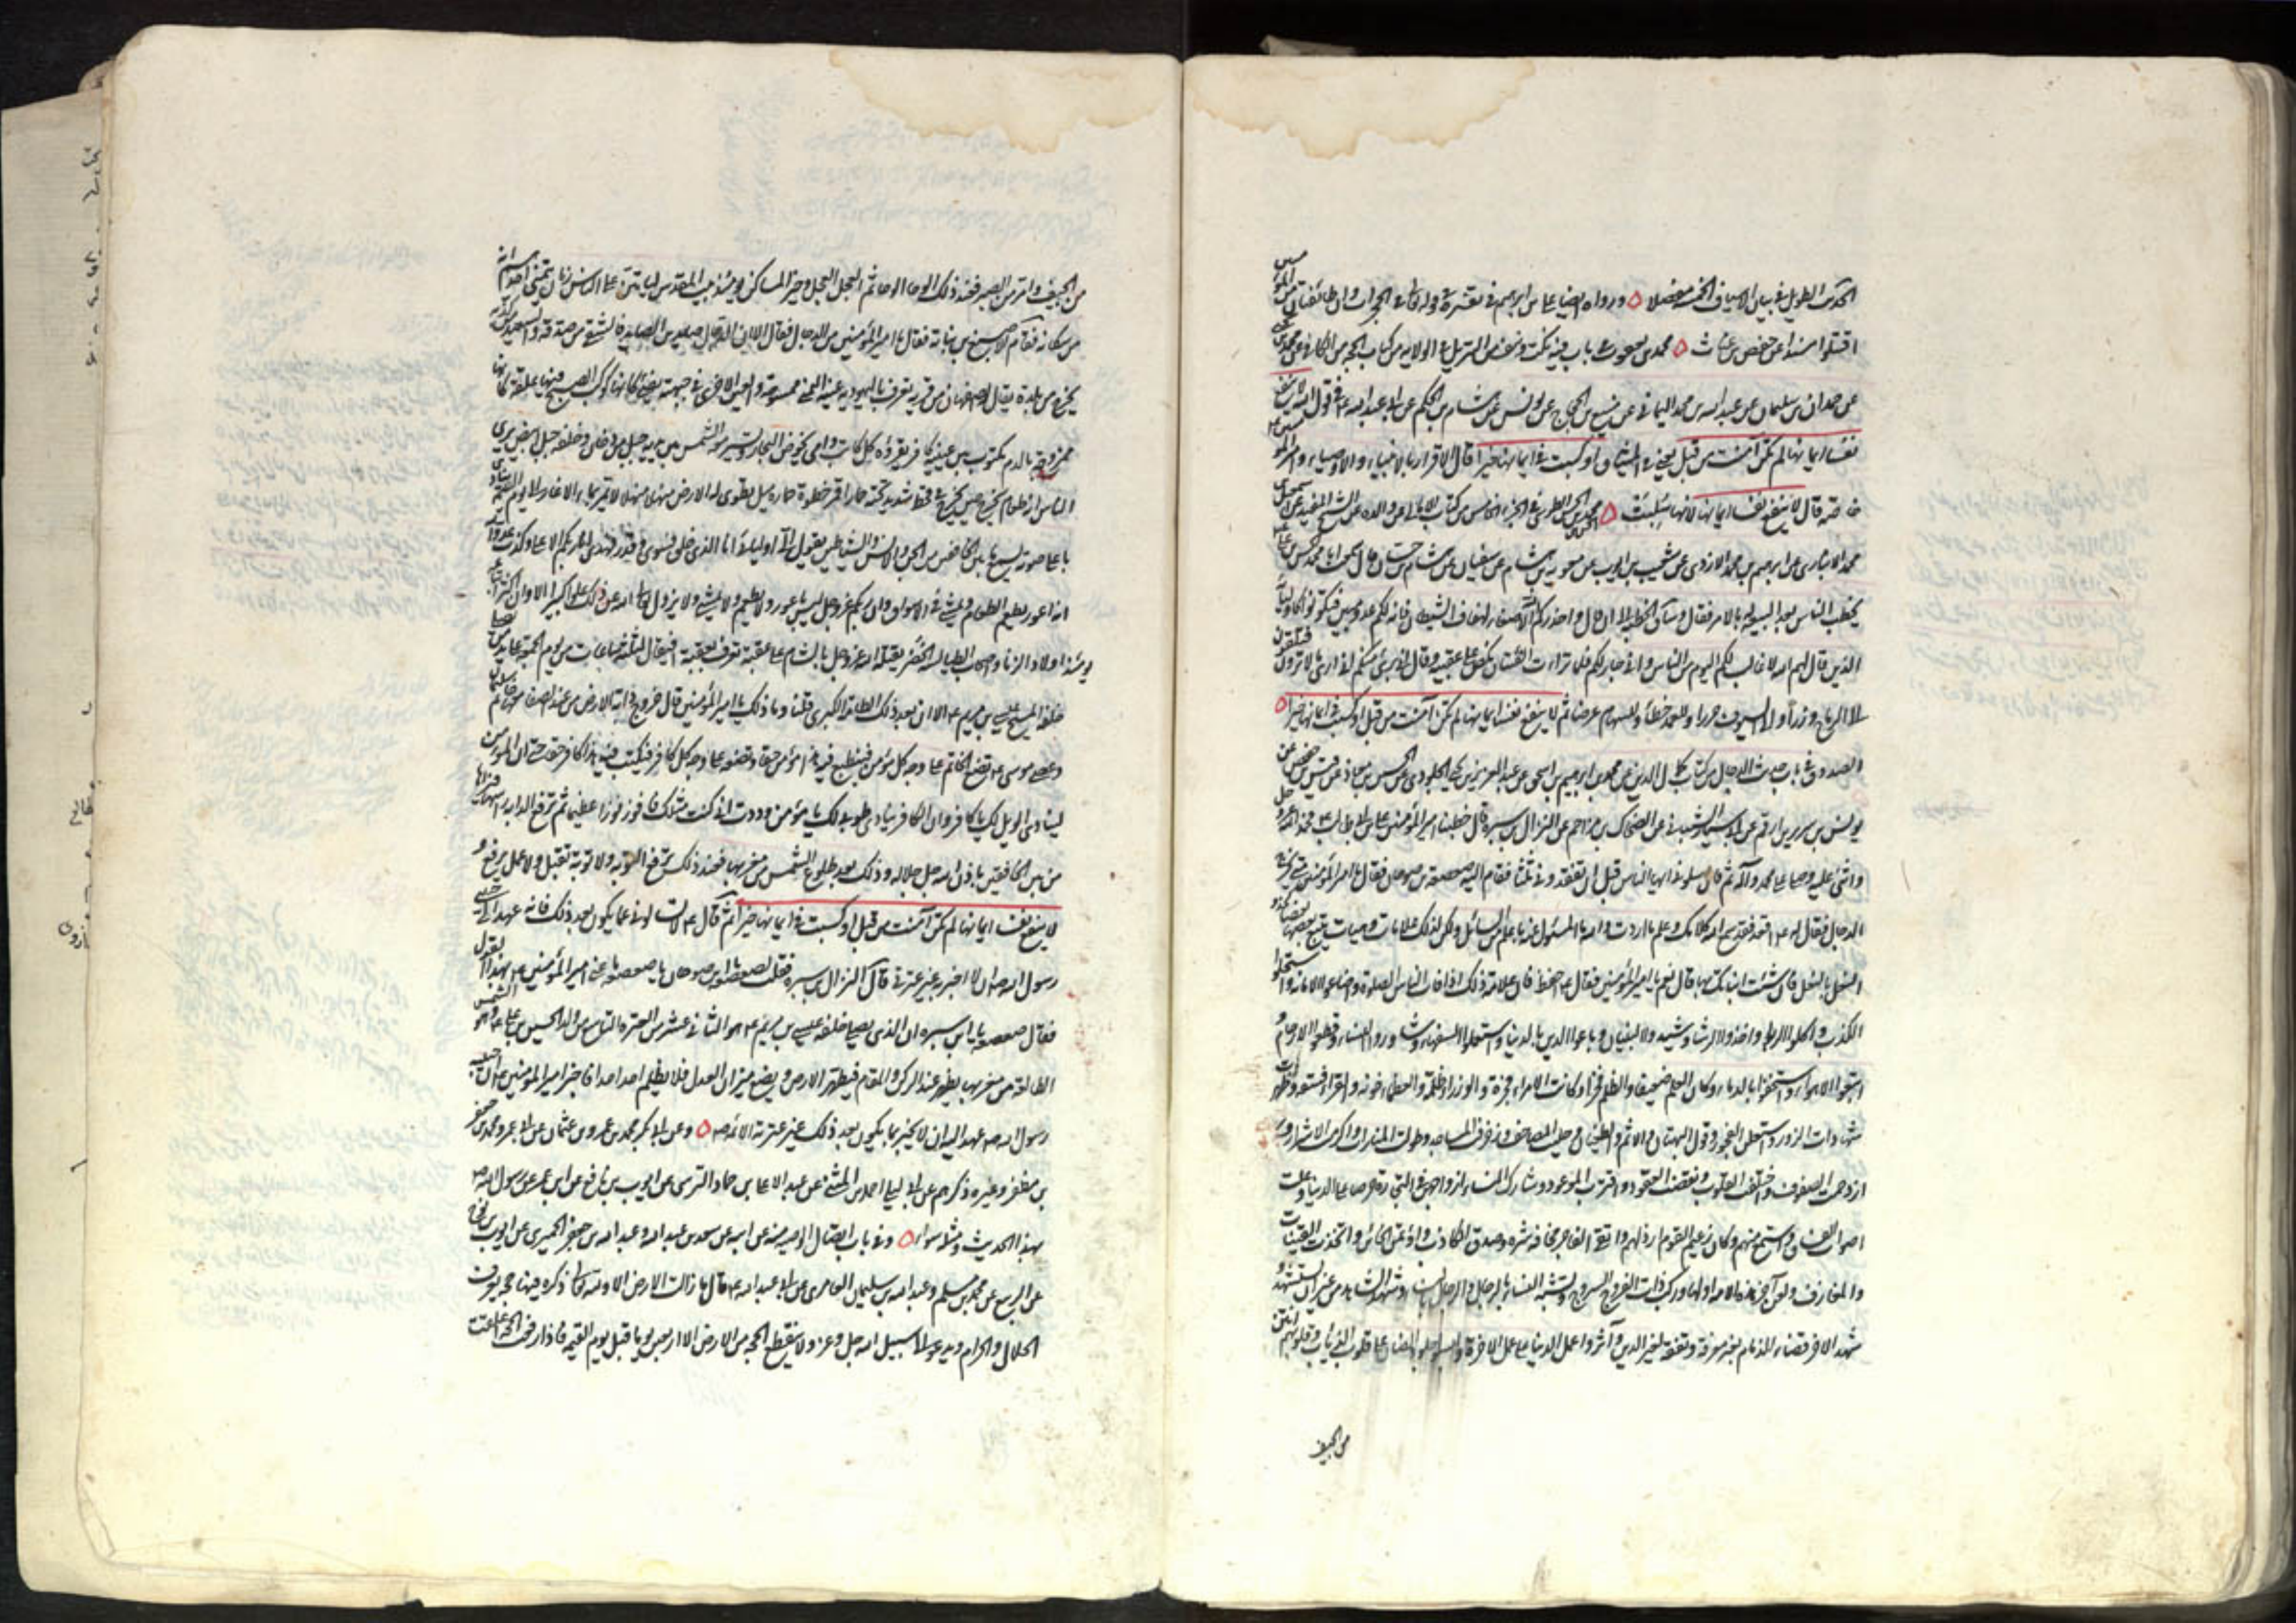 الحديث الطويل في بيان الاسياف الخمسة مفصلا ورواه ايضا علي بن ابراهيم في تفسيره وله تعالى في الحجرات وان طائفتان من المؤمنين
اقتتلوا مسندا عن حفص بن غياث محمد بن يعقوب في باب فيه نكت ونتف من التنزيل في الولاية من كتاب الحجة من الكافي عن محمد بن يحيى
عن حمدان بن سليمان عن عبد الله بن محمد اليماني عن منيع بن الحجاج عن يونس عن هشام بن الحكم عن ابي عبد الله ع في قول الله لا ينفع
نفسا ايمانها لم تكن آمنت من قبل يعني في الميثاق او كسبت في ايمانها خيرا قال الاقرار بالانبياء والاوصياء وامير المؤمنين ع
خاصة قال لا ينفع نفسا ايمانها لانها سلبت محمد بن الحسن الطوسي في الجزء الخامس من كتاب الامالي عن والده عن الشيخ المفيد عن اسمعيل بن
محمد الانباري عن ابراهيم بن محمد الازدي عن شعيب بن ايوب عن معوية بن هشام عن سفيان عن هشام بن حسان قال سمعت ابا محمد الحسن بن علي ع
يخطب الناس بعد البيعة له بالامر فقال وساق الخطبة الى ان قال واحذركم الاصغاء لهتاف الشيطان فانه لكم عدو مبين فتكونوا كاوليائه
الذين قال لهم لا غالب لكم اليوم من الناس واني جار لكم فلما تراءت الفئتان نكص على عقبيه وقال اني بريء منكم اني ارى ما لا ترون فتلقون
الى الرماح وزرا والى السيوف جزرا وللعمد خطأ وللسهام غرضا ثم لا ينفع نفسا ايمانها لم تكن آمنت من قبل او كسبت في ايمانها خيرا
الصدوق في باب حديث الدجال من كتاب كمال الدين عن محمد بن ابراهيم بن اسحق عن عبد العزيز بن يحيى الجلودي عن الحسين بن معاذ عن قيس بن حفص عن
يونس بن ارقم عن ابي سيار الشيباني عن الضحاك بن مزاحم عن النزال بن سبرة قال خطبنا امير المؤمنين علي بن ابي طالب ع فحمد الله عز وجل
واثنى عليه وصلى على محمد وآله ثم قال سلوني ايها الناس قبل ان تفقدوني ثلثا فقام اليه صعصعة بن صوحان فقال يا امير المؤمنين متى يخرج
الدجال فقال له ع اقعد فقد سمع الله كلامك وعلم ما اردت والله ما المسئول عنه باعلم من السائل ولكن لذلك علامات وهيات يتبع بعضها بعضا كحذو
النعل بالنعل فان شئت انبأتك بها قال نعم يا امير المؤمنين فقال ع احفظ فان علامة ذلك اذا امات الناس الصلوة واضاعوا الامانة واستحلوا
الكذب واكلوا الربا واخذوا الرشا وشيدوا البنيان وباعوا الدين بالدنيا واستعملوا السفهاء وشاوروا النساء وقطعوا الارحام و
اتبعوا الاهواء واستخفوا بالدماء وكان الحلم ضعيفا والظلم فخرا وكانت الامراء فجرة والوزراء ظلمة والعرفاء خونة والقراء فسقة وظهرت
شهادات الزور واستعلن الفجور وقول البهتان والاثم والطغيان وحليت المصاحف وزخرفت المساجد وطولت المنارات واكرمت الاشرار و
ازدحمت الصفوف واختلفت القلوب ونقضت العقود واقترب الموعود وشاركت النساء ازواجهن في التجارة حرصا على الدنيا وعلت
اصوات الفساق واستمع منهم وكان زعيم القوم ارذلهم واتقي الفاجر مخافة شره وصدق الكاذب واؤتمن الخائن واتخذت القينات
والمعازف ولعن آخر هذه الامة اولها وركب ذوات الفروج السروج وتشبه النساء بالرجال والرجال بالنساء وشهد الشاهد من غير ان يستشهد و
شهد الاخر قضاء لذمام بغير معرفة وتفقه لغير الدين وآثروا عمل الدنيا على عمل الاخرة ولبسوا جلود الضان على قلوب الذئاب وقلوبهم انتن
من الجيف
من الجيف وامر من الصبر فعند ذلك الوحا الوحا ثم العجل العجل وخير المساكن يومئذ بيت المقدس لياتين على الناس زمان يتمنى احدهم انه
من سكانه فقام الاصبغ بن نباتة فقال يا امير المؤمنين من الدجال فقال الا ان الدجال صايد بن الصايد فالشقي من صدقه والسعيد من كذبه
يخرج من بلدة يقال لها اصفهان من قرية تعرف باليهودية عينه اليمنى ممسوحة والعين الاخرى في جبهته تضيء كانها كوكب الصبح فيها علقة كانها
ممزوجة بالدم مكتوب بين عينيه كافر يقرؤه كل كاتب وامي يخوض البحار وتسير معه الشمس بين يديه جبل من دخان وخلفه جبل ابيض يرى
الناس انه طعام يخرج حين يخرج في قحط شديد تحته حمار اقمر خطوة حماره ميل تطوى له الارض منهلا منهلا لا يمر بماء الا غار الى يوم القيمة ينادي
باعلى صوته يسمع ما بين الخافقين من الجن والانس والشياطين يقول الي اوليائي انا الذي خلق فسوى وقدر فهدى انا ربكم الاعلى وكذب عدو الله
انه اعور يطعم الطعام ويمشي في الاسواق وان ربكم عز وجل ليس باعور ولا يطعم ولا يمشي ولا يزول تعالى الله عن ذلك علوا كبيرا الا وان اكثر اتباعه
يومئذ اولاد الزنا واصحاب الطيالسة الخضر يقتله الله عز وجل بالشام على عقبة تعرف بعقبة افيق لثلث ساعات من يوم الجمعة على يد من يصلي
خلفه المسيح عيسى بن مريم ع الا ان بعد ذلك الطامة الكبرى قلنا وما ذلك يا امير المؤمنين قال خروج دابة الارض من عند الصفا معها خاتم سليمان
وعصى موسى ع تضع الخاتم على وجه كل مؤمن فينطبع فيه هذا مؤمن حقا وتضعه على وجه كل كافر فيكتب فيه هذا كافر حقا حتى ان المؤمن
لينادي الويل لك يا كافر وان الكافر ينادي طوبى لك يا مؤمن وددت اني كنت مثلك فافوز فوزا عظيما ثم ترفع الدابة راسها فيراها
من بين الخافقين باذن الله جل جلاله وذلك بعد طلوع الشمس من مغربها فعند ذلك ترفع التوبة ولا توبة تقبل ولا عمل يرفع و
لا ينفع نفسا ايمانها لم تكن آمنت من قبل او كسبت في ايمانها خيرا ثم قال ع لا تسالوني عما يكون بعد ذلك فانه عهد الي حبيبي
رسول الله ص ان لا اخبر به غير عترتي قال النزال بن سبرة فقلت لصعصعة بن صوحان يا صعصعة ما عنى امير المؤمنين ع بهذا القول
فقال صعصعة يا ابن سبرة ان الذي يصلي خلفه عيسى بن مريم ع هو الثاني عشر من العترة التاسع من ولد الحسين بن علي ع وهو الشمس
الطالعة من مغربها يظهر عند الركن والمقام فيطهر الارض ويضع ميزان العدل فلا يظلم احد احدا فاخبر امير المؤمنين ع ان حبيبه
رسول الله ص عهد اليه ان لا يخبر بما يكون بعد ذلك غير عترته الائمة ص وعن ابي بكر محمد بن عمرو بن عثمان عن ابي عمرو محمد بن جعفر
بن مظفر وغيره ذكرهم عن ابي يعلى احمد بن المثنى عن عبد الاعلى بن حماد النرسي عن ايوب عن نافع عن ابن عمر عن رسول الله ص
بهذا الحديث مثله سواء وفي باب اتصال الوصية منه عن ابيه عن سعد بن عبد الله وعبد الله بن جعفر الحميري عن ايوب بن نوح
عن الربيع بن محمد بن المسلي وعبد الله بن سليمان العامري عن ابي عبد الله ع قال ما زالت الارض الا ولله تعالى ذكره فيها حجة يعرف
الحلال والحرام ويدعو الى سبيل الله جل وعز ولا ينقطع الحجة من الارض الا اربعين يوما قبل يوم القيمة فاذا رفعت الحجة اغلقت